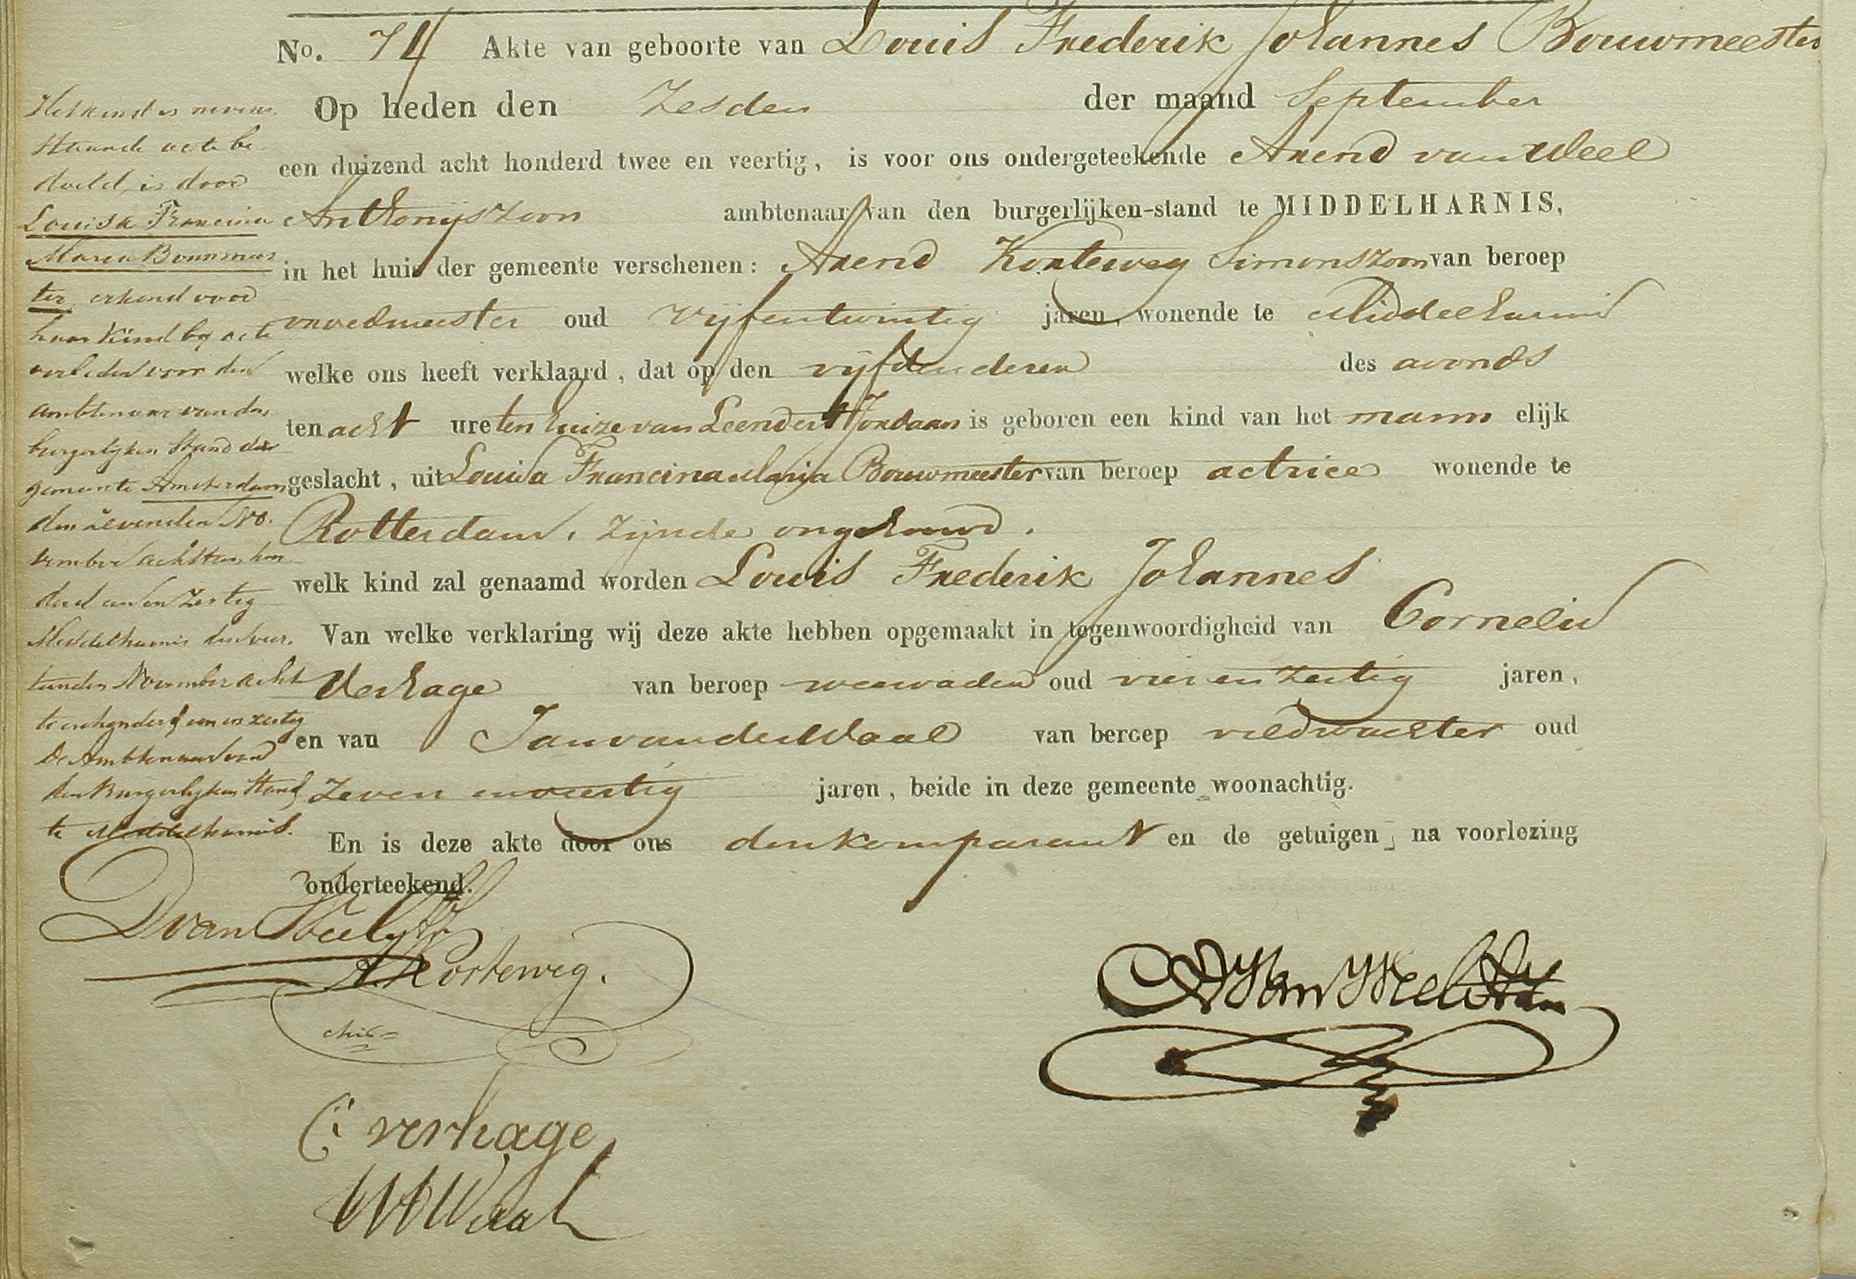 No. 74 Akte van geboorte van Louis Frederik Johannes Bouwmeester
Op heden den Zesden der maand September
een duizend acht honderd twee en veertig, is voor ons ondergeteekende Arend van Weel
Anthonijszoon ambtenaar van den burgerlijken-stand te MIDDELHARNIS,
in het huis der gemeente verschenen: Arend Korteweg Simonszoon van beroep
vroedmeester oud vijfentwintig jaren, wonende te Middelharnis
welke ons heeft verklaard, dat op den vijfden dezen des avonds
ten acht ure ten huize van Leendert Jordaan is geboren een kind van het mann elijk
geslacht, uit Louisa Francina Maria Bouwmeester van beroep actrice wonende te
Rotterdam, zijnde ongehuwd.
welk kind zal genaamd worden Louis Frederik Johannes
Van welke verklaring wij deze akte hebben opgemaakt in tegenwoordigheid van Cornelis
Verhage van beroep oud vier en zestig jaren,
en van Jan van der Waal van beroep veldwachter oud
zeven en veertig jaren, beide in deze gemeente woonachtig.
En is deze akte door ons den komparant en de getuigen, na voorlezing
onderteekend.
Het kind in nevens
staande acte be
doeld, is door
Louisa Francina
Maria Bouwmees
ter erkend voor
haar kind bij acte
verleden voor den
ambtenaar van den
burgerlijken Stand der
gemeente Amsterdam
den zevenden No
vember achttien hon
derd een en zestig
Middelharnis den veer
tienden November acht
tienhonderd een en zestig
De Ambtenaar van
den Burgerlijken Stand
te Middelharnis.
D van Weel
A Korteweg.
A Van Weel
C: verhage
Waal